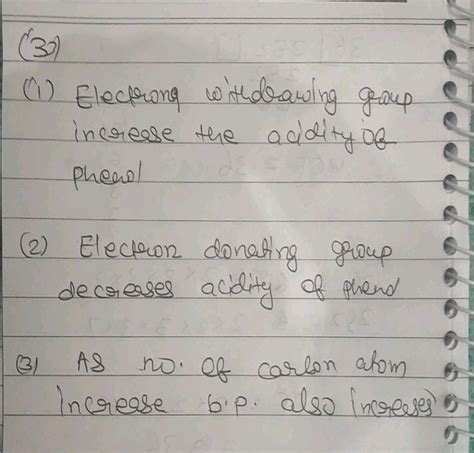 (3)
(1) Electrong withdrawing group
increase the acidity of
phenol
(2) Electron donating group
decreases acidity of phenol
(3) As no. of carbon atom
increase b.p. also increases